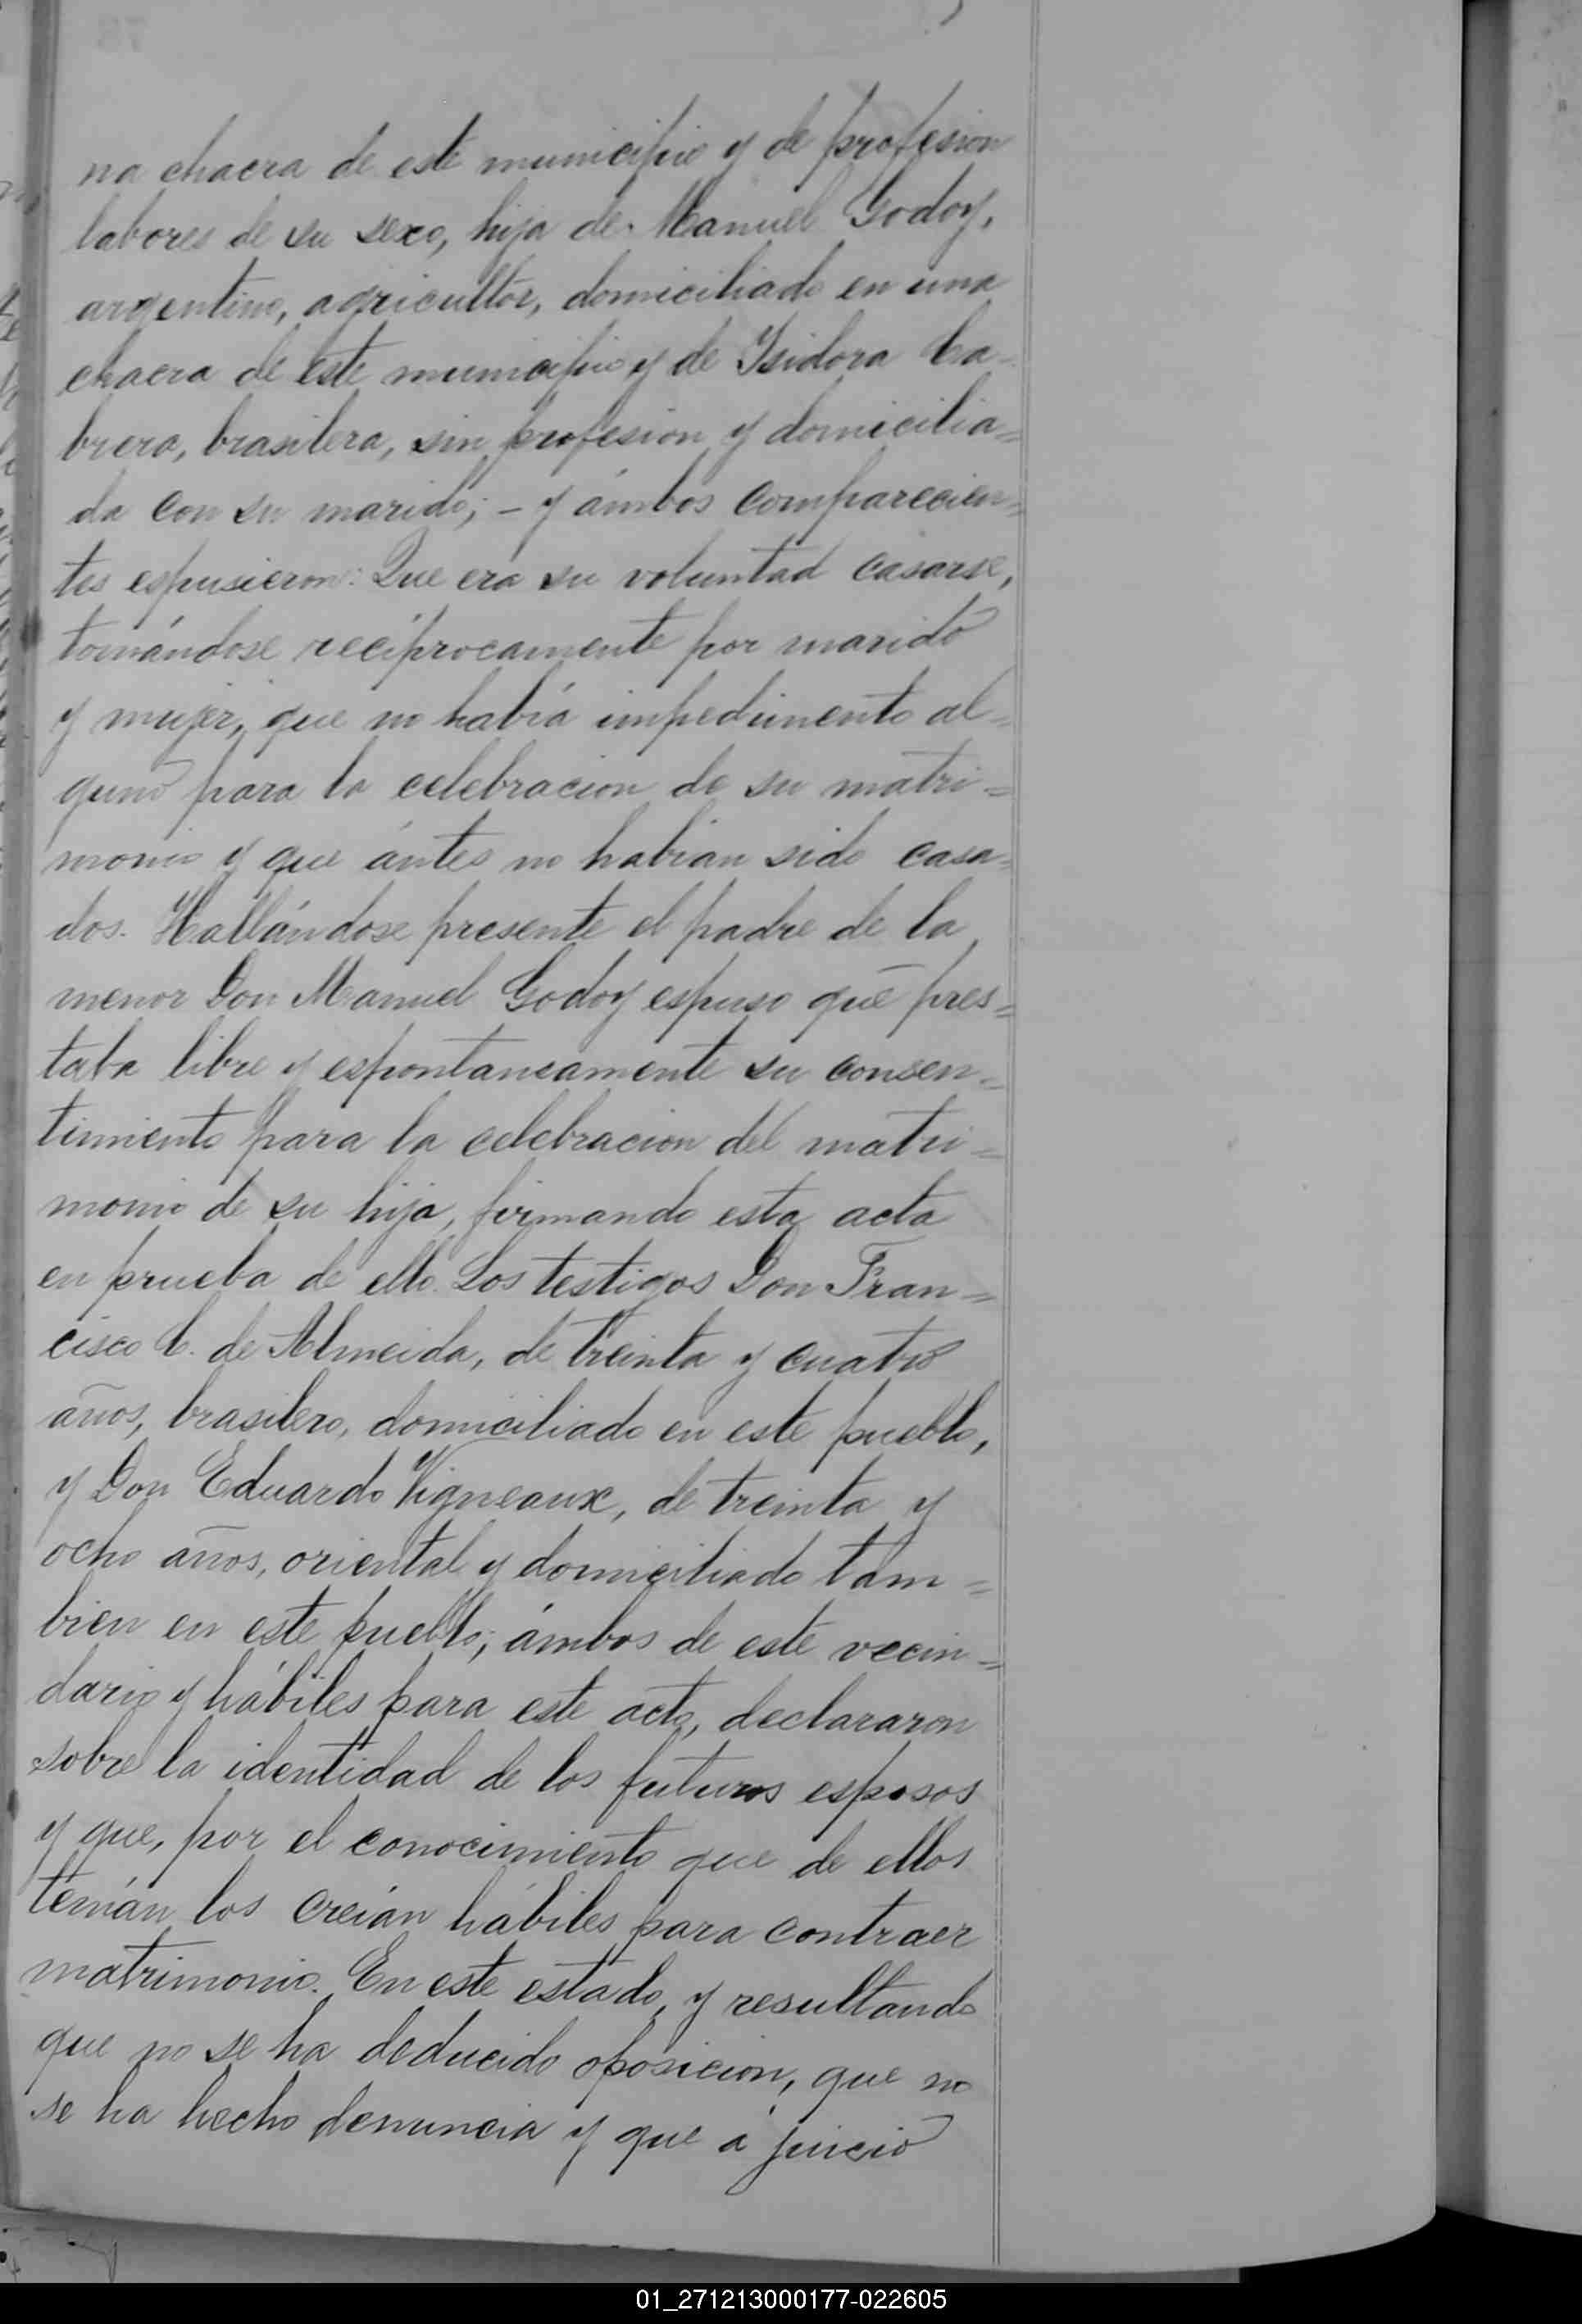 na chacra de este municipio y de profesion
labores de su sexo, hija de Manuel Godoy,
argentino, agricultor, domiciliado en una
chacra de este municipio y de Ysidora Ca-
brera, brasilera, sin profesion y domicilia=
da con su marido; - y ámbos comparecien=
tes espusieron: Que era su voluntad casarse,
tomándose recíprocamente por marido
y mujer, que no había impedimento al=
guno para la celebracion de su matri=
monio y que ántes no habian sido casa=
dos. Hallándose presente el padre de la
menor Don Manuel Godoy espuso que pres=
taba libre y espontaneamente su consen=
timiento para la celebracion del matri=
monio de su hija, firmando esta acta
en prueba de ello. Los testigos Don Fran=
cisco C. de Almeida, de treinta y cuatro
años, brasilero, domiciliado en este pueblo,
y Don Eduardo Vigneaux, de treinta y
ocho años, oriental y domiciliado tam=
bien en este pueblo; ámbos de este vecin=
dario y hábiles para este acto, declararon
sobre la identidad de los futuros esposos
y que, por el conocimiento que de ellos
tenían los creían hábiles para contraer
matrimonio. En este estado, y resultando
que no se ha deducido oposicion, que no
se ha hecho denuncia y que á juicio
01_271213000177-022605